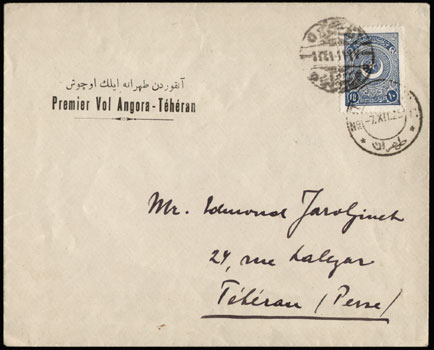 آنقوردن طهرانه ایلك اوچوش
Premier Vol Angora-Téhéran
١٠
طهران
Mr. Edmond Jaroljmek
24, rue Lalezar
Téhéran (Perse)